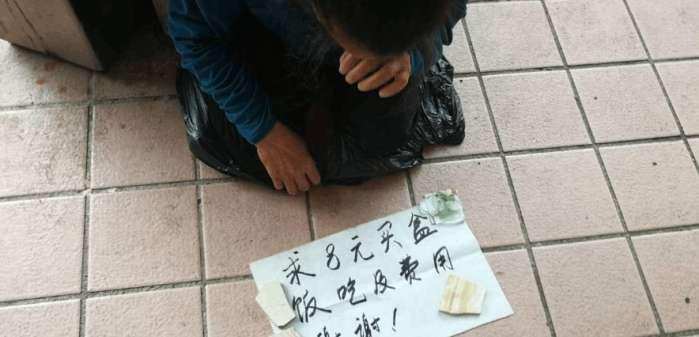 求8元买盒
饭吃及费用
谢谢!